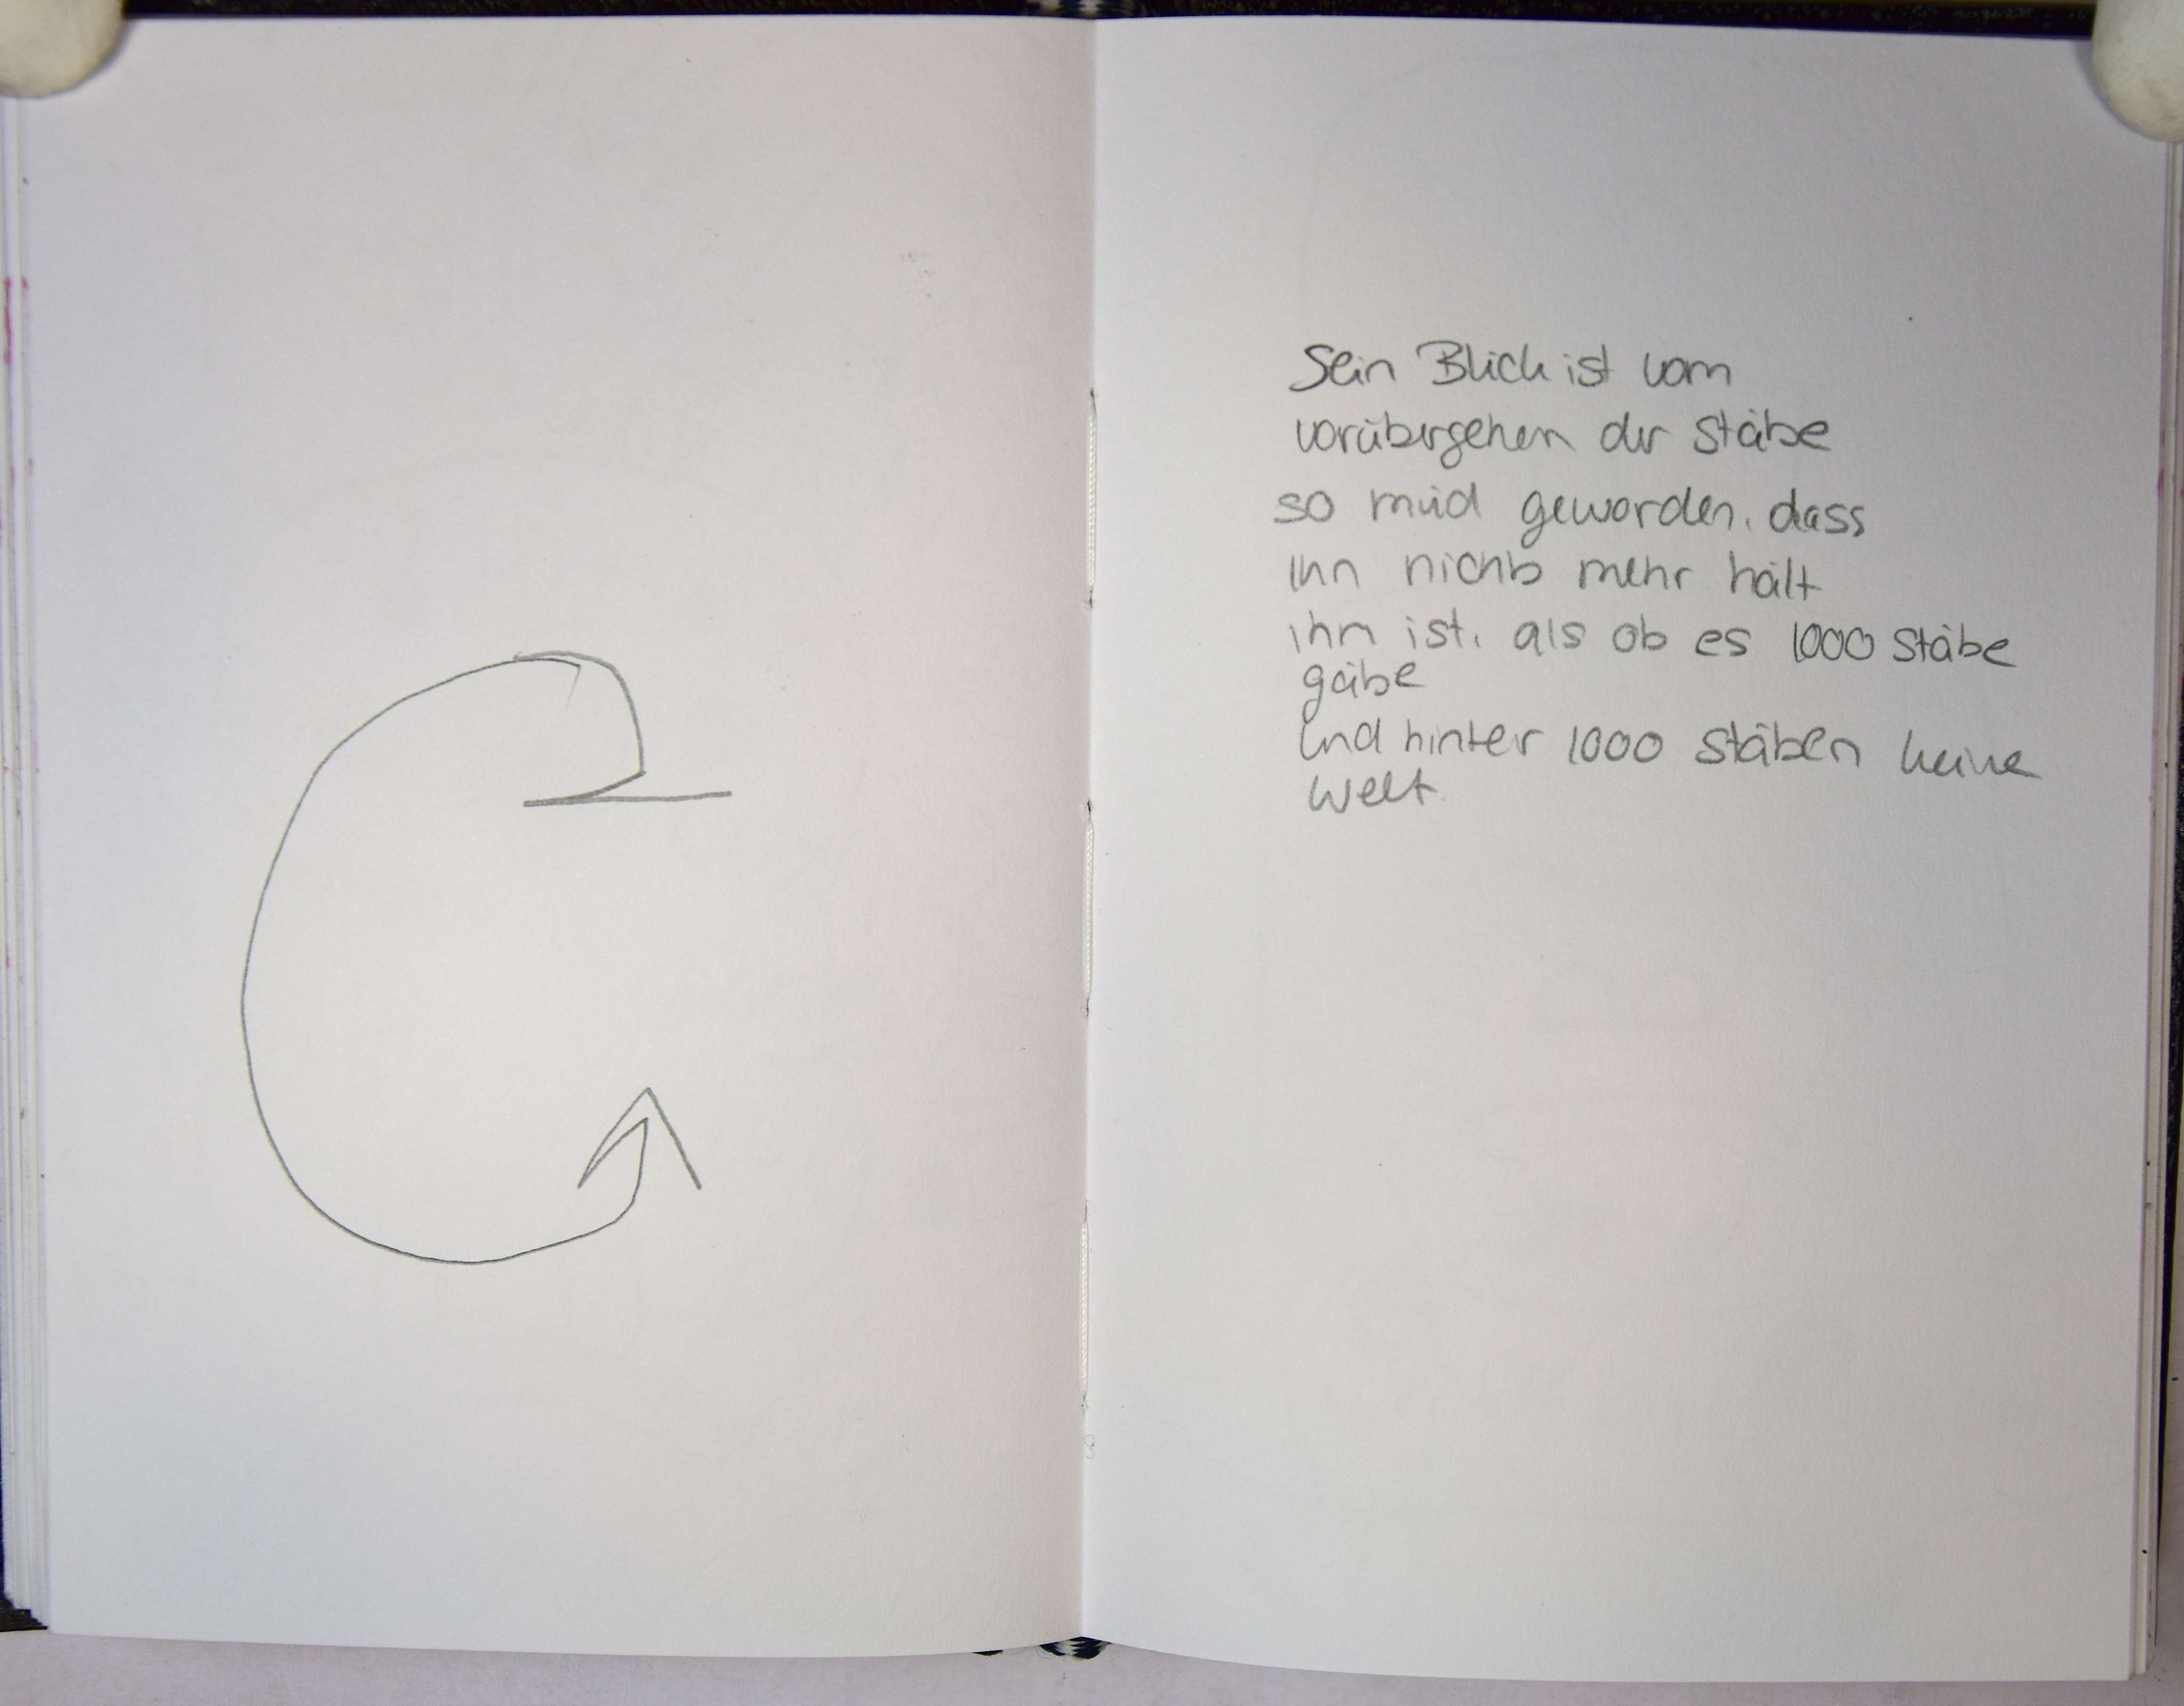 Sein Blick ist vom
vorübergehen der Stäbe
so müd geworden, dass
ihn nichts mehr hält
ihm ist, als ob es 1000 Stäbe
gäbe
und hinter 1000 Stäben keine
Welt.